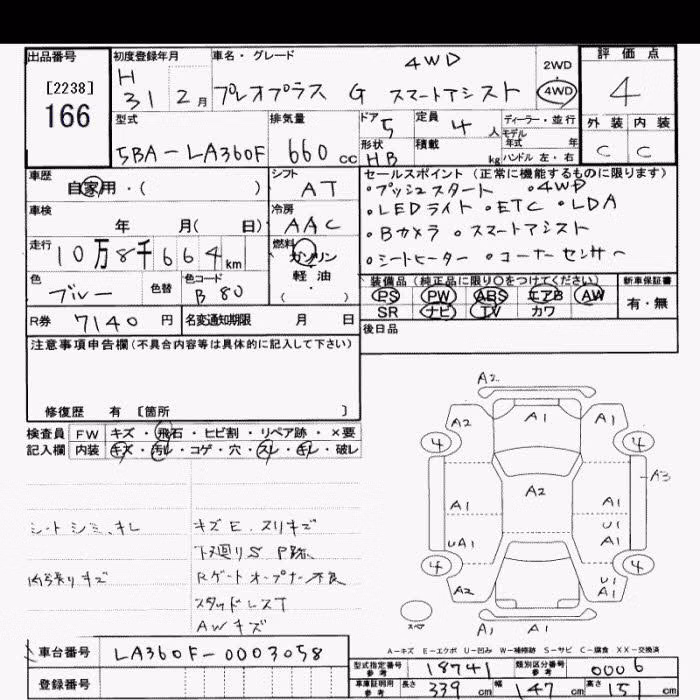 出品番号
[2238]
166
初度登録年月
H 31 2 月
車名・グレード
4WD
プレオプラス G スマートアシスト
2WD
4WD
評価点
4
外装 内装
C C
型式
5BA-LA360F
排気量
660 cc
ドア 5
形状 HB
定員 4 人
積載 kg
ディーラー・並行
モデル
年式 年
ハンドル 左・右
車歴
自家用・( )
シフト
AT
車検
年 月( 日)
冷房
AAC
走行
10万8千664km
燃料
ガソリン
軽・油
( )
色
ブルー
色替
色コード
B80
R券 7140 円
名変通知期限 月 日
セールスポイント(正常に機能するものに限ります)
・プッシュスタート ・4WD
・LEDライト ・ETC ・LDA
・Bカメラ ・スマートアシスト
・シートヒーター ・コーナーセンサー
装備品(純正品に限り〇をつけてください)
PS PW ABS エアB AW
SR ナビ TV カワ
新車保証書
有・無
後日品
注意事項申告欄(不具合内容等は具体的に記入して下さい)
修復歴 有 [箇所 ]
検査員
記入欄
FW キズ・飛石・ヒビ割・リペア跡・×要
内装 キズ・汚レ・コゲ・穴・スレ・キレ・破レ
シートシミ、キレ
内張りキズ
キズE、スリキズ
下廻りS P跡
Rゲートオープナー不良
スタッドレスT
AWキズ
A2
A2 A1 A1
4 4
A3
A2
A1 A1
U1
UA1 A1
4 4
U1
A2 A1
A1 A1
スペア
A-キズ E-エクボ U-凹み W-補修跡 S-サビ C-腐食 XX-交換済
車台番号 LA360F-0003058
登録番号
型式指定番号
参考
18741
類別区分番号
参考
0006
車庫証明用
参考
長さ 339 cm 幅 147 cm 高さ 151 cm